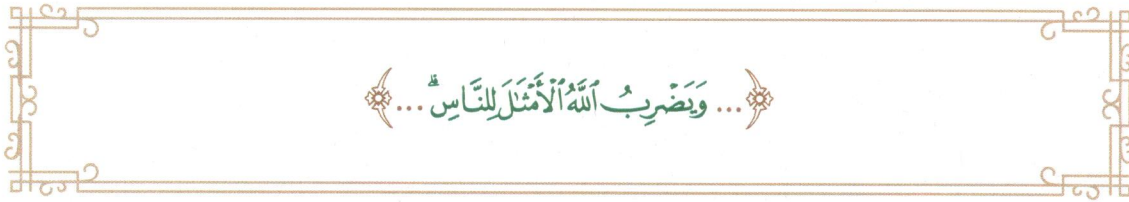 ﴿... وَيَضْرِبُ ٱللَّهُ ٱلْأَمْثَـٰلَ لِلنَّاسِ ۗ ...﴾